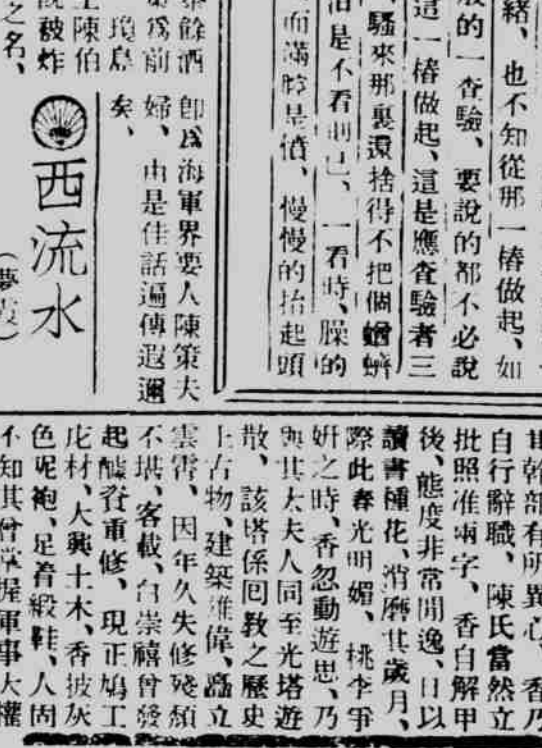 緒、也不知從那一樁做起、如
般的一查驗、要說的都不必說
這一樁做起、這是應查驗者三
騷來那裏還捨得不把個蝤蠐
是不看則已、一看時、臊的
而滿腔是憤、慢慢的抬起頭
餘酒
爲前
瓊島
陳伯
被炸
之名、
卽爲海軍界要人陳策夫
婦、由是佳話遍傳遐邇
矣、
西流水
(夢
其幹部有所異心、香乃
自行辭職、陳氏當然立
批照准兩字、香自解甲
後、態度非常閒逸、日以
讀書種花、消磨其歲月、
際此春光明媚、桃李爭
姸之時、香忽動遊思、乃
與其太夫人同至光塔遊
散、該塔係回敎之歷史
上古物、建築雄偉、矗立
雲霄、因年久失修殘頹
不堪、客載、白崇禧曾發
起醵資重修、現正鳩工
庀材、大興土木、香披灰
色呢袍、足着緞鞋、人固
不知其曾掌握軍事大權